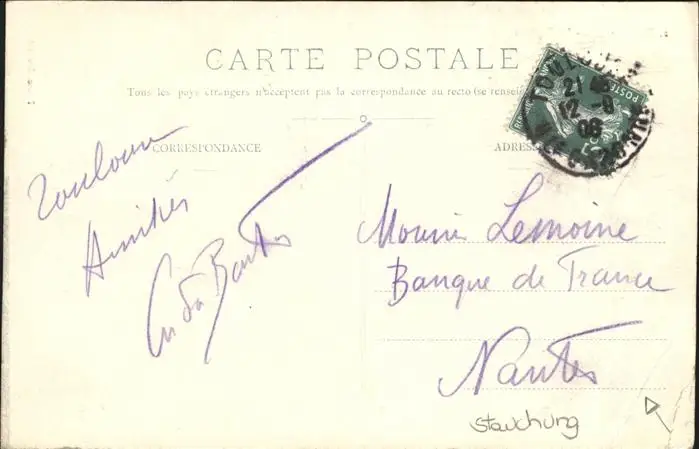 CARTE POSTALE
Tous les pays étrangers n'acceptent pas la correspondance au recto (se rensei
CORRESPONDANCE
ADRESSE
TOULOUSE
21
12 -9
08
POSTES
Toulouse
Amitiés
Lemoine
Banque de France
Nantes
Stauchung